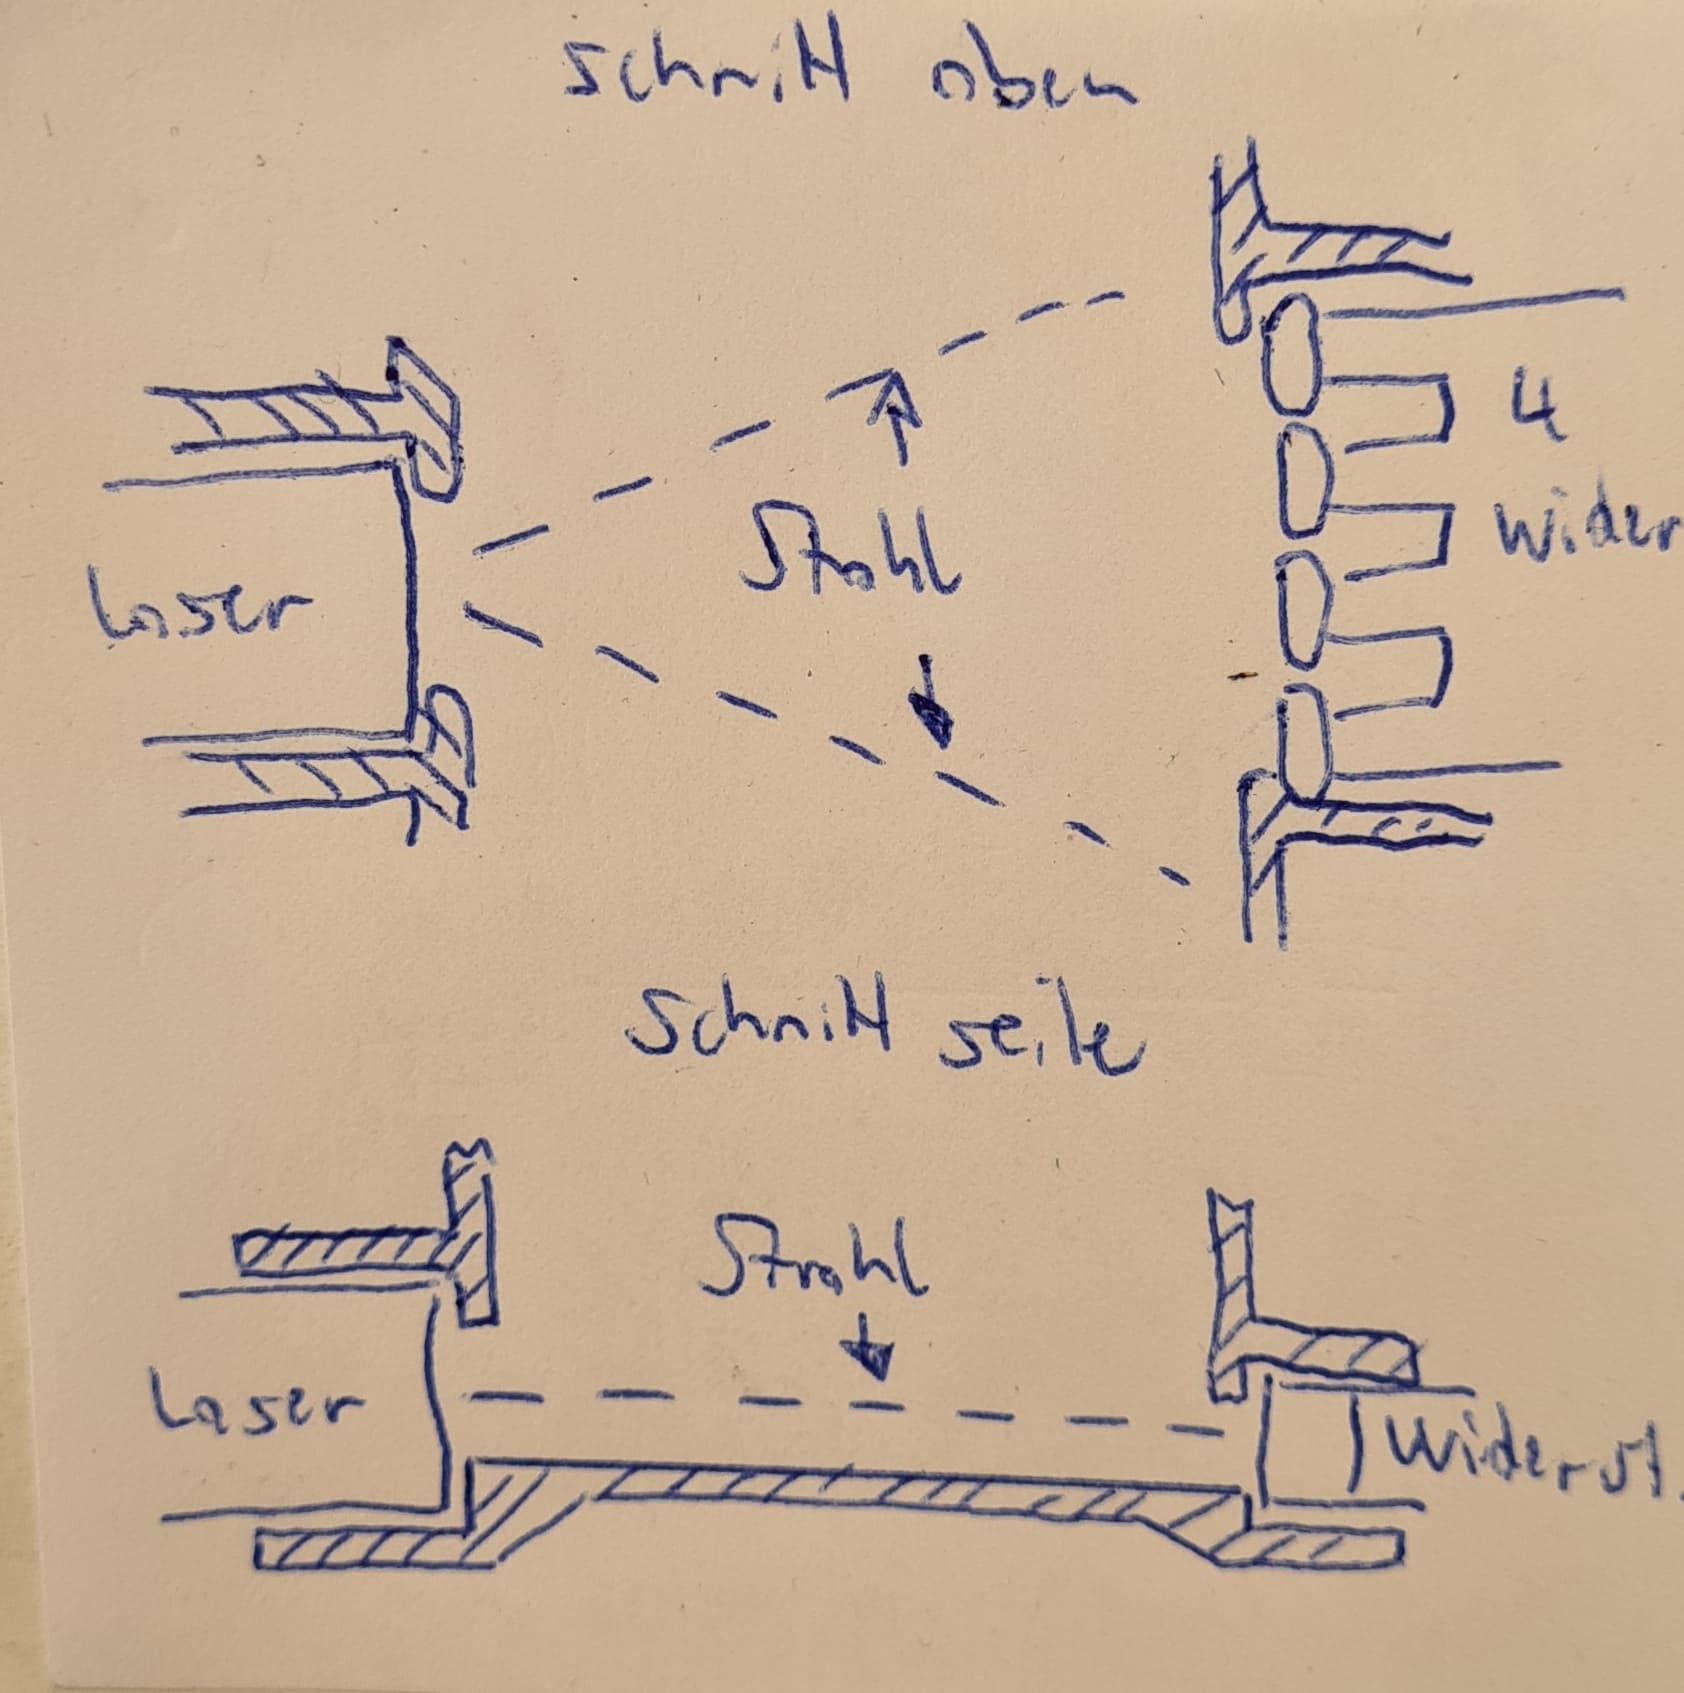 Schnitt oben
4
Wider
Strahl
Laser
Schnitt seite
Strahl
Laser
Widerst.